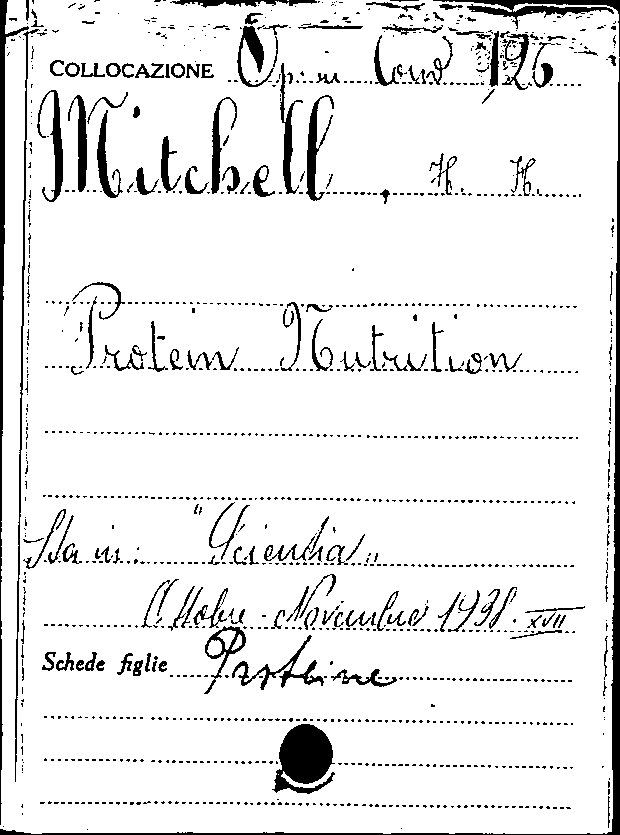 COLLOCAZIONE Op. in Cont 126
Mitchell, H. H.
Protein Nutrition
Sta in: "Scientia„
Ottobre - Novembre 1938. XVII
Schede figlie Proteine